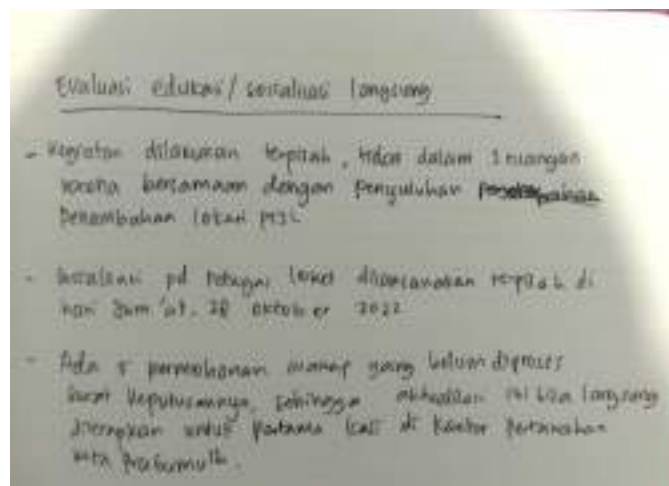 Evaluasi edukasi/sosialisasi langsung
- Kegiatan dilakukan terpisah, tidak dalam 1 ruangan
karena bersamaan dengan penyuluhan
Penambahan lokasi PTSL
- Sosialisasi pd petugas loket dilaksanakan terpisah di
hari Jum'at, 28 Oktober 2022
- Ada 5 permohonan wakaf yang belum diproses
surat keputusannya, sehingga ini bisa langsung
diterapkan untuk pertama kali di Kantor Pertanahan
kota Prabumulih.